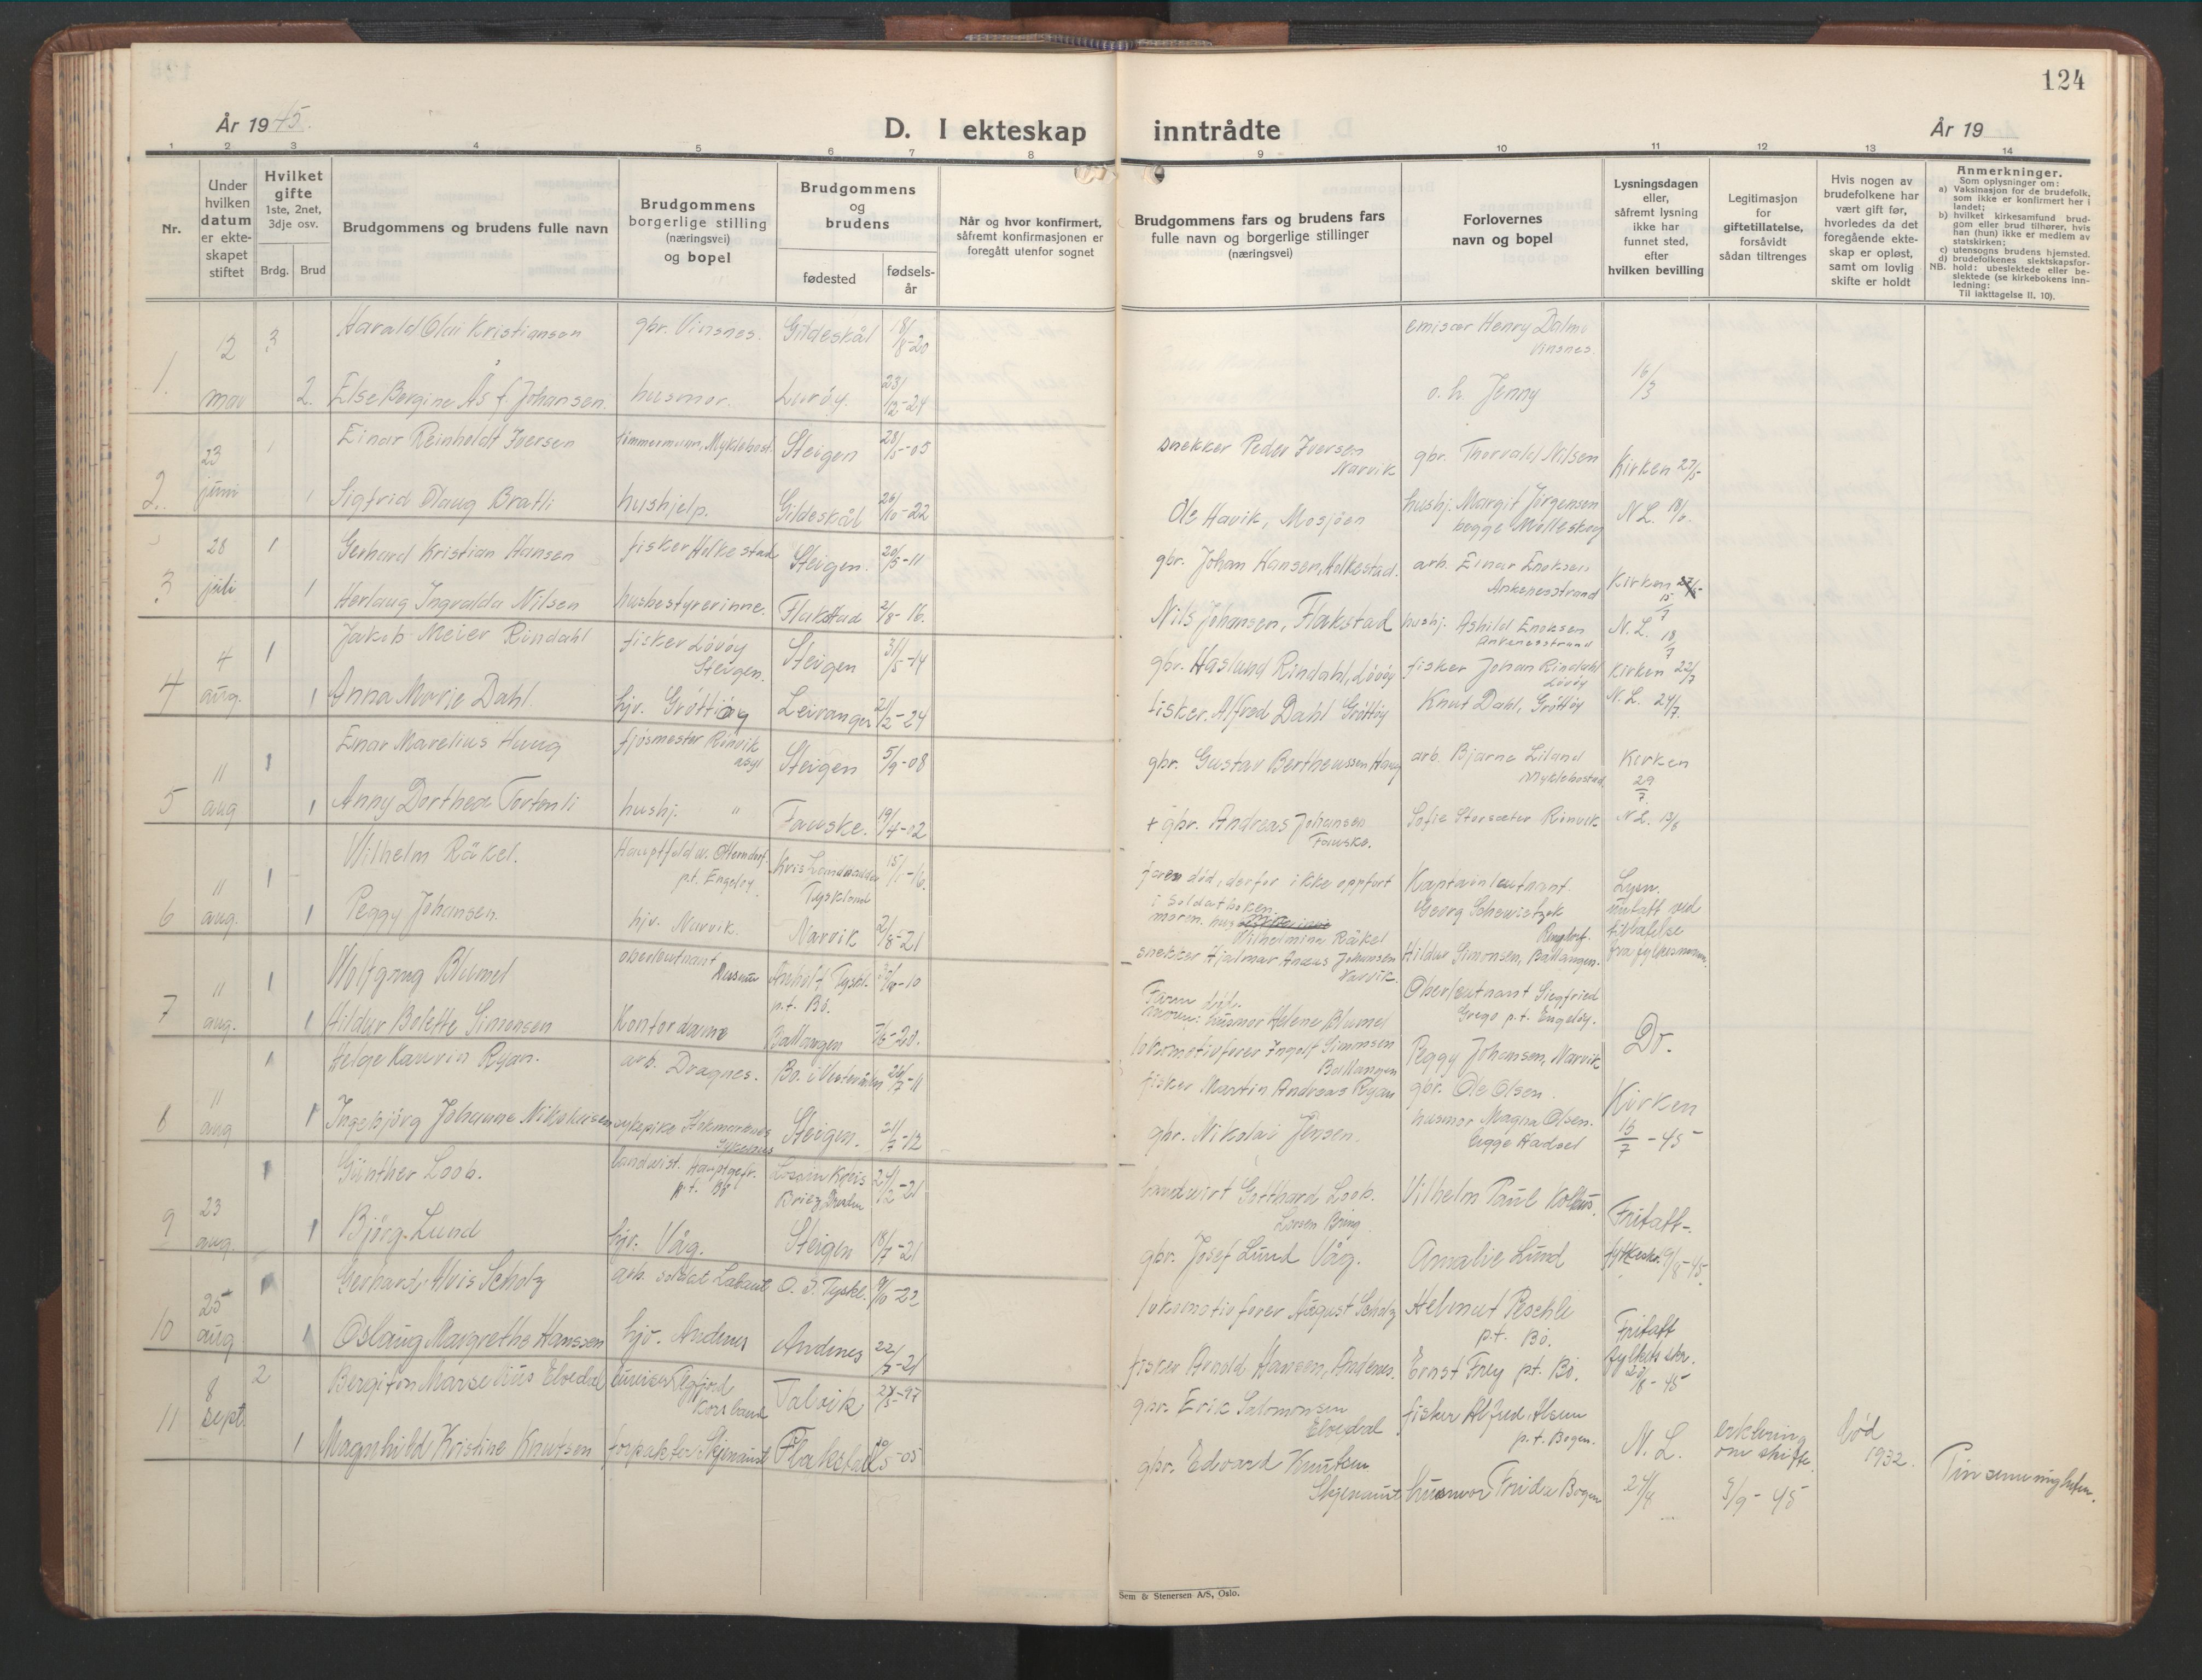 124
År 1945.
D. I ekteskap inntrådte
År 19
1 2 3 4 5 6 7 8 9 10 11 12 13 14
Nr.
Under hvilken datum er ekteskapet stiftet
Hvilket gifte 1ste, 2net, 3dje osv.
Brdg. Brud
Brudgommens og brudens fulle navn
Brudgommens borgerlige stilling (næringsvei) og bopel
Brudgommens og brudens
fødested
fødsels-år
Når og hvor konfirmert, såfremt konfirmasjonen er foregått utenfor sognet
Brudgommens fars og brudens fars fulle navn og borgerlige stillinger (næringsvei)
Forlovernes navn og bopel
Lysningsdagen eller, såfremt lysning ikke har funnet sted, efter hvilken bevilling
Legitimasjon for giftetillatelse, forsåvidt sådan tiltrenges
Hvis nogen av brudefolkene har vært gift før, hvorledes da det foregående ekteskap er opløst, samt om lovlig skifte er holdt
Anmerkninger.
Som oplysninger om:
a) Vaksinasjon for de brudefolk, som ikke er konfirmert her i landet;
b) hvilket kirkesamfund brudgom eller brud tilhører, hvis han (hun) ikke er medlem av statskirken;
c) utensogns brudens hjemsted.
d) brudefolkenes slektskapsforhold: ubeslektede eller beslektede (se kirkebokens innledning:
NB.
Til iakttagelse II, 10).
1. 12 mai
3 Harald Olai Kristiansen gbr. Vinsnes. Gildeskål 18/8-20
emisær Henry Dalmo Vinsnes.
2. Else Bergine Ås f. Johansen. husmor. Lurøy. 23/12-24
o. h. Jenny 16/3
2. 23 juni
1 Einar Reinholdt Iversen tømmermann, Myklebost. Steigen 28/5-05
snekker Peder Iversen Narvik
gbr. Thorvald Nilsen Kirken 27/5
1 Sigfrid Olaug Bratli hushjelp. Gildeskål 26/10-22
Ole Havik, Mosjøen
hushj. Margit Jørgensen begge Mølleskog N.L. 18/6.
3 28 juli
1 Gerhard Kristian Hansen fisker Holkestad Steigen. 20/5-11
gbr. Johan Hansen, Holkestad.
arb. Einar Enoksen Ankenesstrand Kirken 15/7
1 Herlaug Ingvalda Nilsen husbestyrerinne. Flakstad 2/8-16.
Nils Johansen, Flakstad
hushj. Ashild Enoksen Ankenesstrand N.L. 18/7
4 4 aug.
1 Jakob Meier Rindahl fisker Løvøy Steigen. Steigen 31/5-14
gbr. Haslund Rindahl, Løvøy
fisker Johan Rindahl Løvøy Kirken 22/7
1 Anna Marie Dahl. hjv. Grøttøy Leiranger 2/2-24
fisker. Alfred Dahl Grøttøy
Knut Dahl, Grøtøy N.L. 24/7.
5 11 aug
1 Einar Marelius Haug fjøsmester Rønvik asyl Steigen 5/9-08
gbr. Gustav Bertheussen Haug
arb. Bjarne Liland Myklebostad Kirken 29/7.
1 Anny Dorthea Tortenli hushj. " Fauske. 19/4-02
+ gbr. Andreas Johansen Fauske.
Sofie Storsæter Rønvik N.L. 13/8
6 11 aug.
1 Wilhelm Räkel. p.t. Engeløy. Tyskland 15/1-16.
faren død, derfor ikke oppført i soldatboken. moren. Wilhelmine Räkel
Kaptainleutnant. Georg Schewietzek
Lysn. untatt ved tillatelse fra fylkesmann.
1 Peggy Johansen. hjv. Narvik. Narvik 2/8-21
snekker Hjalmar Andeas Johansen Narvik.
Hildur Simonsen, Ballangen.
7 11 aug.
1 Wolfgang Blumel oberleutnant p.t. Bø. -10
Faren død. moren: husmor Helene Blumel
Oberleutnant Siegfried Grego p.t. Engeløy.
1 Hildur Bolette Simonsen Kontordame Ballangen 7/6-20.
lokomotivfører Ingolf Simonsen Ballangen
Peggy Johansen, Narvik
Do.
8 11 aug
1 Helge Kaurin Ryan. arb. Dragnes. Bø. i Vesterålen 26/7-11
fisker Martin Andreas Ryan
gbr. Ole Olsen.
1 Ingebjørg Johanne Nikolaisen sykepike Stokmarknes sykehus Steigen. 21/7-12
gbr. Nikolai Jensen.
husmor Magna Olsen. begge Hadsel
Kirken 15/7-45
9 23 aug.
1 Günther Loob. landwirt. Hauptgefr. p.t. Bø 24/2-21
landwirt Gotthard Loob.
Vilhelm Paul
1 Bjørg Lund hjv. Våg. Steigen 18/7-21
gbr. Josef Lund Våg.
Amalie Lund
Fritatt- 9/8-45.
10 25 aug
1 Gerhard Alois Scholz arb. soldat O. S. Tyskl. 9/10-22
lokomotivfører August Scholz
Helmut Peschke p.t. Bø.
1 Oslaug Margrethe Hanssen hjv. Andenes Andenes 22/7-21
fisker Arnold Hansen, Andenes.
Ernst Frey p.t. Bø.
Fritatt fylkets skr. 20/8-45
11 8 sept.
2 Bergiton Marselius Elvedal Talvik -97
gbr. Erik Salomonsen Elvedal
fisker Alfred Alsen p.t. Bogen.
1 Magnhild Kristine Knutsen forpakter Skjenaust Flakstad -05
gbr. Edvard Knutsen Skjenaust
husmor Frida Bogen
N.L. 21/4
erklæring om skifte. 5/9-45
død 1932.
Pinsemenigheten.
Sem & Stenersen A/S, Oslo.